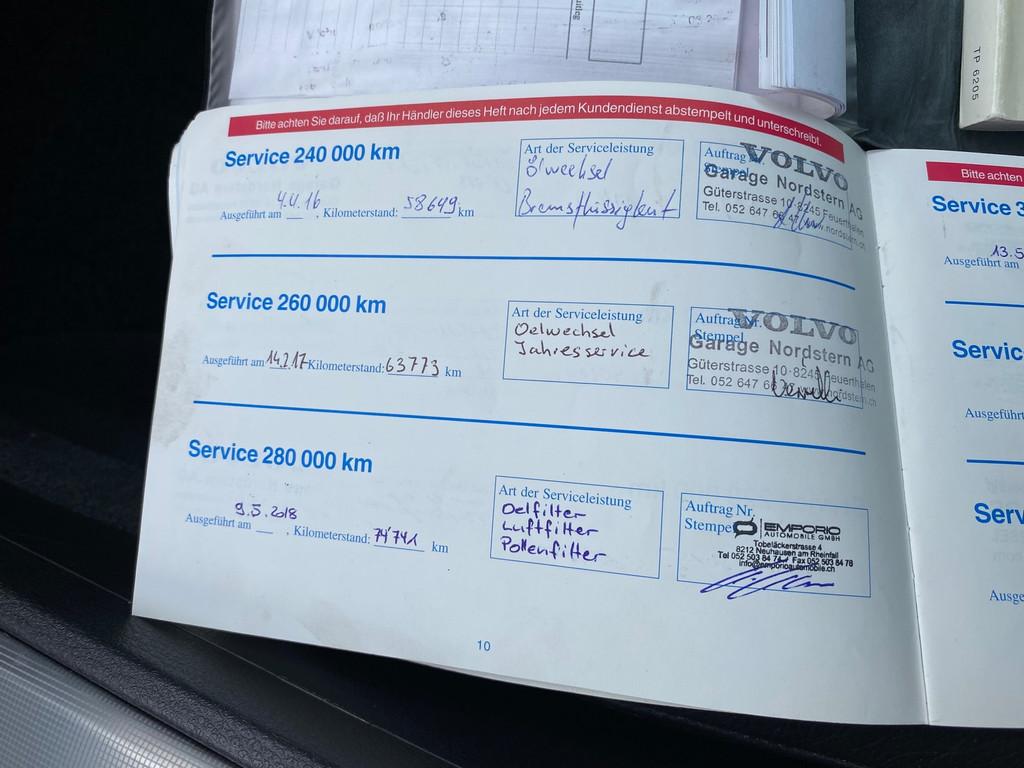 TP 6205
Bitte achten Sie darauf, daß Ihr Händler dieses Heft nach jedem Kundendienst abstempelt und unterschreibt.
Service 240 000 km
Ausgeführt am 4.4.16, Kilometerstand: 58649 km
Art der Serviceleistung
Ölwechsel
Bremsflüssigkeit
Auftrag
VOLVO
Garage Nordstern AG
Güterstrasse 10·8245 Feuerthalen
Tel. 052 647
Service 260 000 km
Ausgeführt am 14.2.17 Kilometerstand: 63773 km
Art der Serviceleistung
Oelwechsel
Jahresservice
Auftrag Nr.
Stempel
VOLVO
Garage Nordstern AG
Güterstrasse 10·8245 Feuerthalen
Tel. 052 647
Service 280 000 km
Ausgeführt am 9.5.2018, Kilometerstand: 74'741 km
Art der Serviceleistung
Oelfilter
Luftfilter
Pollenfilter
Auftrag Nr.
Stempel
EMPORIO
AUTOMOBILE GMBH
Tobeläckerstrasse 4
8212 Neuhausen am Rheinfall
Tel 052 503 84 Fax 052 503 84 78
info@emporioautomobile.ch
10
Bitte achten
Service 3
13.5
Ausgeführt am
Servic
Ausgeführt
Serv
Ausge